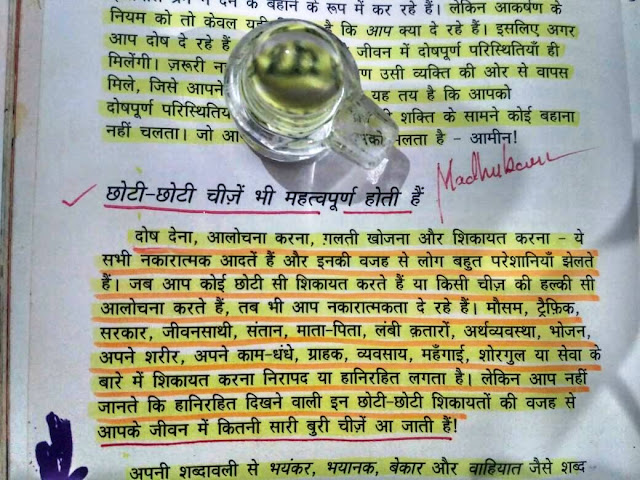 के बहाने के रूप में कर रहे हैं। लेकिन आकर्षण के
नियम को तो केवल यही है कि आप क्या दे रहे हैं। इसलिए अगर
आप दोष दे रहे हैं जीवन में दोषपूर्ण परिस्थितियाँ ही
मिलेंगी। ज़रूरी उसी व्यक्ति की ओर से वापस
मिले, जिसे आपने यह तय है कि आपको
दोषपूर्ण शक्ति के सामने कोई बहाना
नहीं चलता। जो है – आमीन!
Madhuban
छोटी-छोटी चीज़ें भी महत्वपूर्ण होती हैं
दोष देना, आलोचना करना, ग़लती खोजना और शिकायत करना – ये
सभी नकारात्मक आदतें हैं और इनकी वजह से लोग बहुत परेशानियाँ झेलते
हैं। जब आप कोई छोटी सी शिकायत करते हैं या किसी चीज़ की हल्की सी
आलोचना करते हैं, तब भी आप नकारात्मकता दे रहे हैं। मौसम, ट्रैफ़िक,
सरकार, जीवनसाथी, संतान, माता-पिता, लंबी क़तारों, अर्थव्यवस्था, भोजन,
अपने शरीर, अपने काम-धंधे, ग्राहक, व्यवसाय, महँगाई, शोरगुल या सेवा के
बारे में शिकायत करना निरापद या हानिरहित लगता है। लेकिन आप नहीं
जानते कि हानिरहित दिखने वाली इन छोटी-छोटी शिकायतों की वजह से
आपके जीवन में कितनी सारी बुरी चीज़ें आ जाती हैं!
अपनी शब्दावली से भयंकर, भयानक, बेकार और वाहियात जैसे शब्द